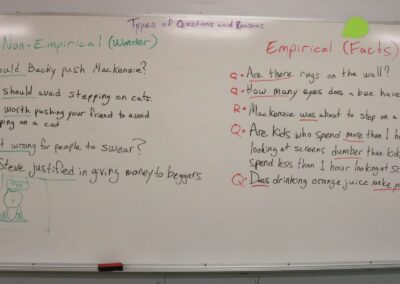 Types of Questions and Reasons
Non-Empirical (Wonder)
Becky push Mackenzie?
should avoid stepping on cats.
worth pushing your friend to avoid
on a cat
wrong for people to swear?
Steve justified in giving money to beggars
Empirical (Facts)
Q- Are there rugs on the wall?
Q- How many eyes does a bee have
R- Mackenzie was about to step on a
Q- Are kids who spend more than 1
looking at screens dumber than
spend less than 1 hour looking at
Q- Does drinking orange juice make